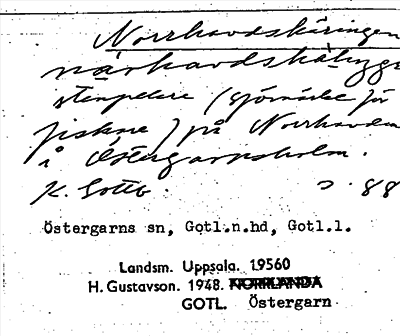 Norrhavdskäringen
stenpelare (sjömärke för
fiskare) på Norrhavden
i Östergarnsholm.
K. Gotlb. s. 88
Östergarns sn, Gotl.n.hd, Gotl.l.
Landsm. Uppsala. 19560
H. Gustavson. 1948. NORRLANDA
GOTL. Östergarn